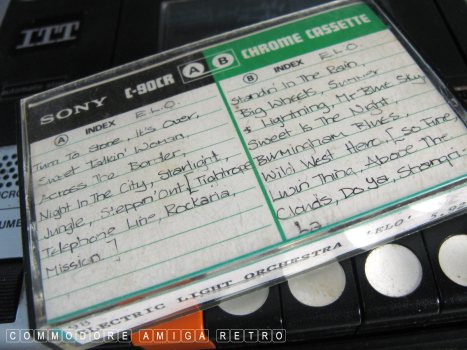 ITT
SONY C-90CR A B CHROME CASSETTE
A INDEX E.L.O.
Turn To Stone, It's Over,
Sweet Talkin' Woman,
Across The Border,
Night In The City, Starlight,
Jungle, Steppin' Out [Tightrope
Telephone Line, Rockaria,
Mission
B INDEX E.L.O.
Standin' In The Rain,
Big Wheels, Summer
& Lightning, Mr Blue Sky,
Sweet Is The Night,
Birmingham Blues,
Wild West Hero, [So Fine
Livin Thing, Above The
Clouds, Do Ya, Shangri
La
ELECTRIC LIGHT ORCHESTRA 'ELO'
COMMODORE AMIGA RETRO